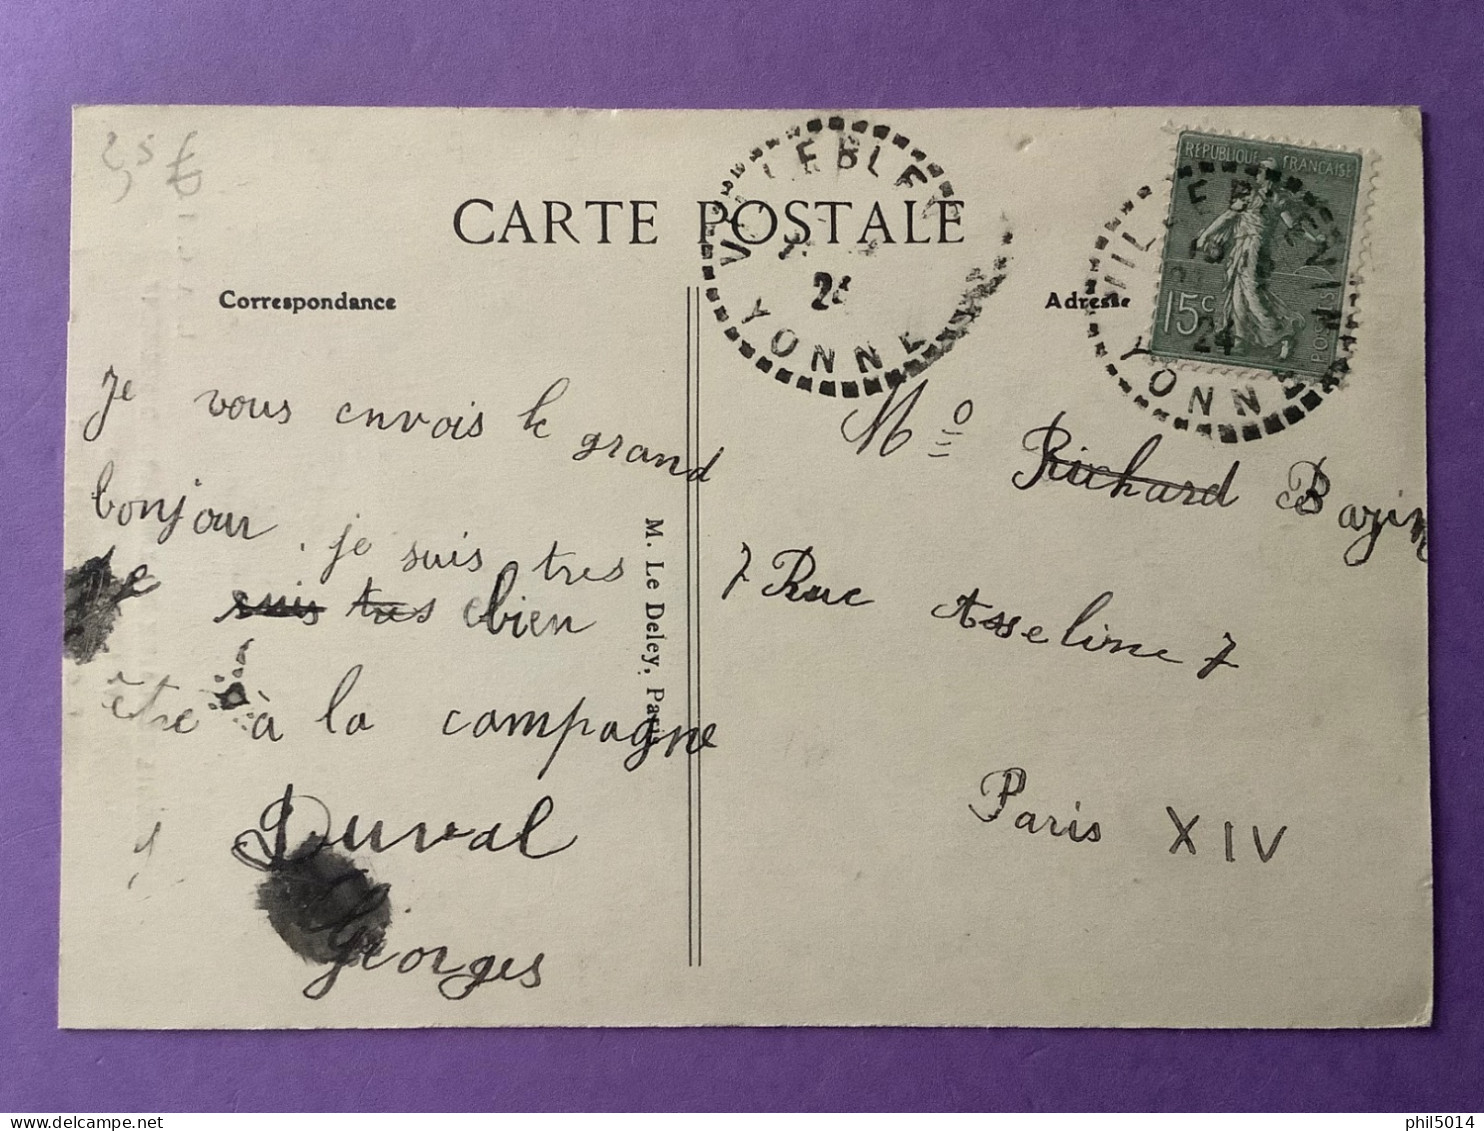 25 €
CARTE POSTALE
VILLEBLE
24
YONNE
REPUBLIQUE FRANÇAISE
15c
POSTES
VILLEBLEVIN
24
YONNE
Correspondance
Adresse
Je vous envois le grand
bonjour. je suis tres
Je suis tres bien
être à la campagne
Duval
Georges
M. Le Deley, Paris
Richard Bazin
7 Rue Asseline 7
Paris XIV
phil5014